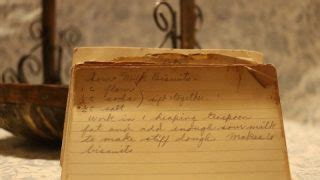 Sour Milk Biscuits
2 c flour
c soda ) sift together
c salt
Work in 1 heaping teaspoon
fat and add enough sour milk
to make stiff dough. Makes 6
biscuits